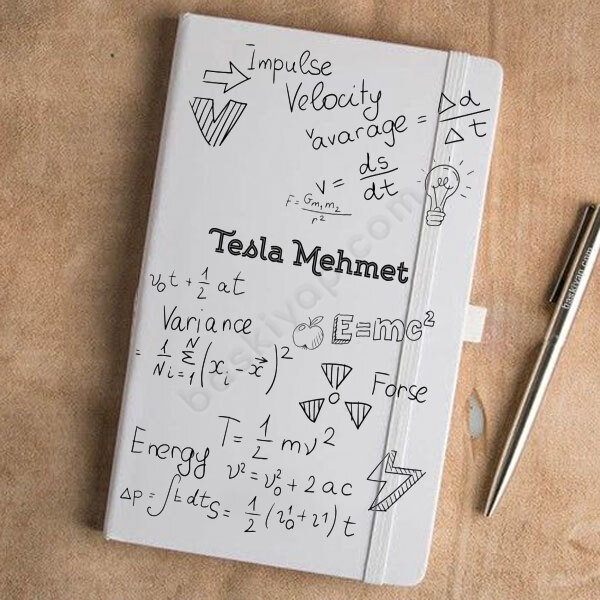 Impulse
Velocity
v avarage = Δd / Δt
v = ds / dt
F = Gm₁m₂ / r²
Tesla Mehmet
v₀t + 1/2 at
Variance
E=mc²
= 1/N Σ N i=1 (xᵢ - x⃗)²
Forse
T = 1/2 mv²
Energy
v² = v₀² + 2ac
Δp = ∫t dt
S = 1/2 (v₀¹ + v¹) t
baskiyap.com
baskiyap.com